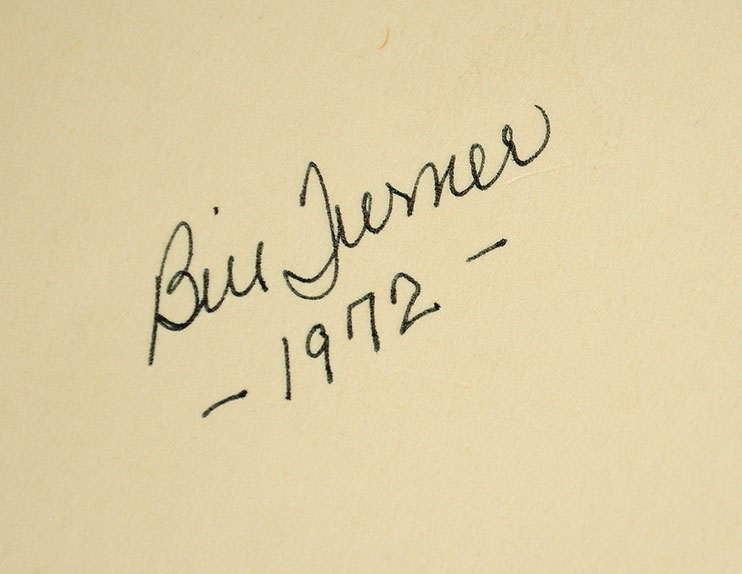 Bill Turner
- 1972 -